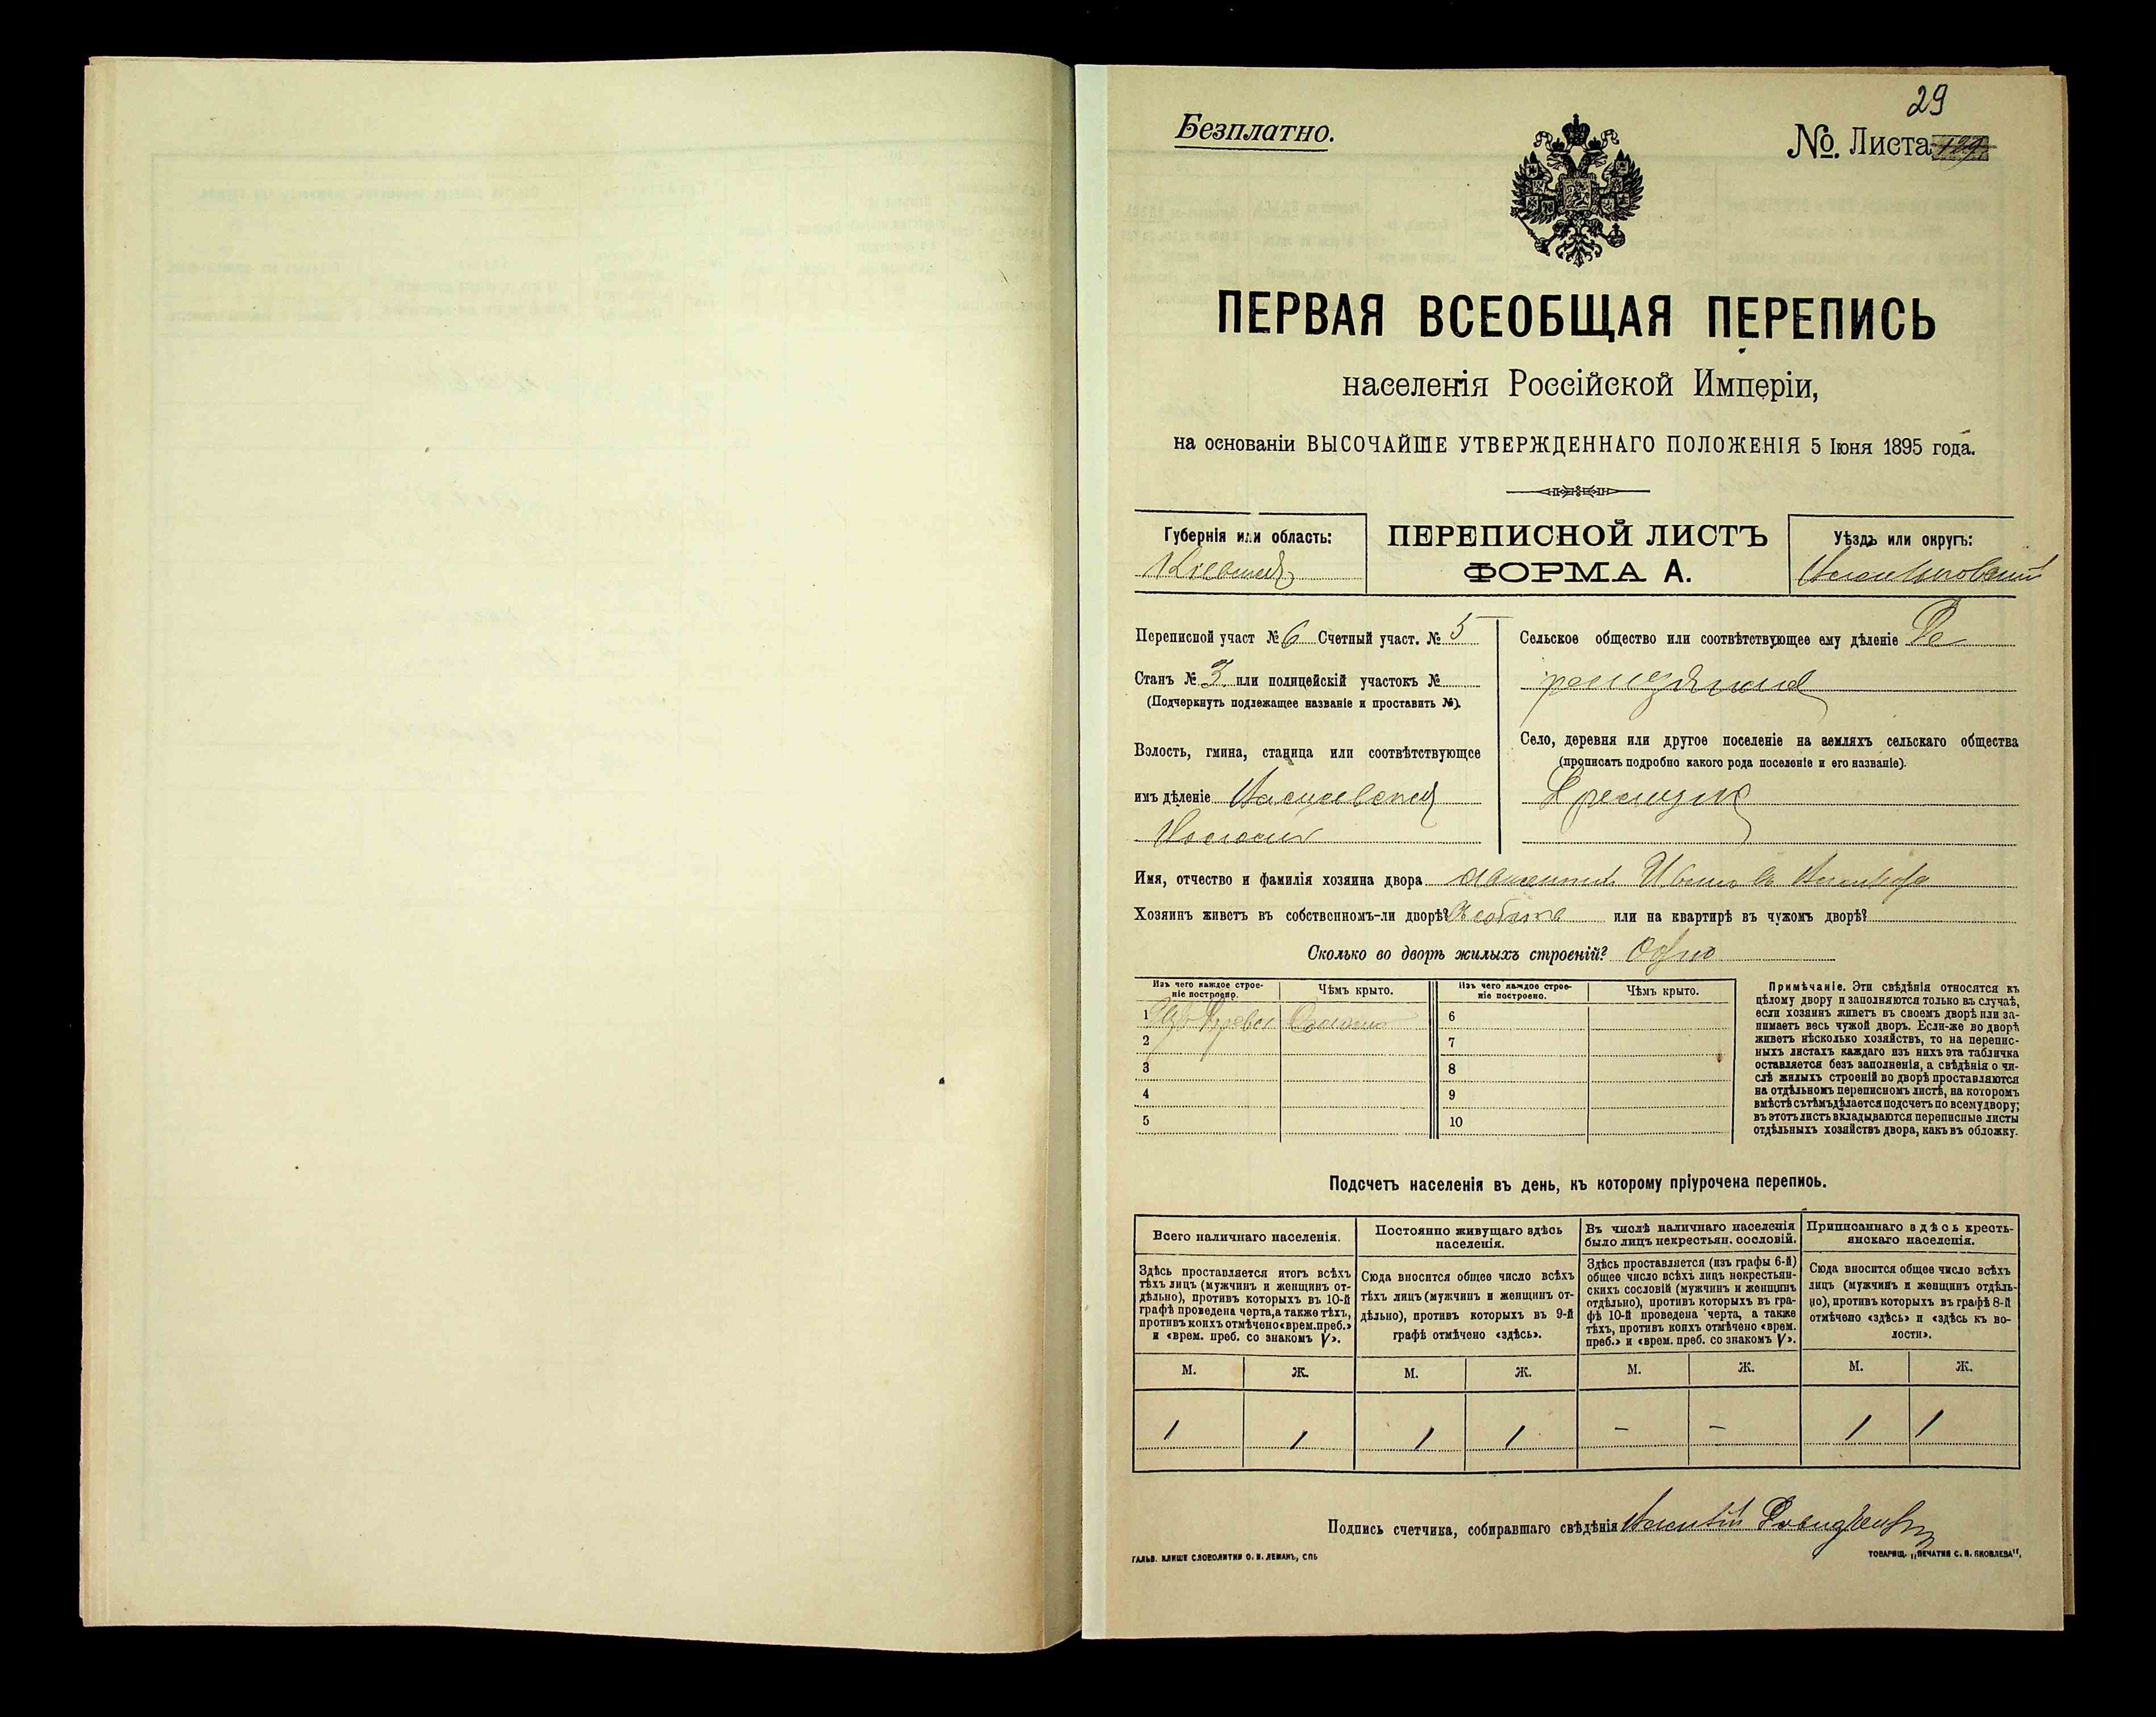 29
Безплатно.
№. Листа 129
ПЕРВАЯ ВСЕОБЩАЯ ПЕРЕПИСЬ
населенія Россійской Имперіи,
на основаніи ВЫСОЧАЙШЕ УТВЕРЖДЕННАГО ПОЛОЖЕНІЯ 5 Іюня 1895 года.
Губернія или область:
Кіевская
ПЕРЕПИСНОЙ ЛИСТЪ
ФОРМА А.
Уѣздъ или округъ:
Переписной участ № 6 Счетный участ. № 5
Станъ № 3 или полицейскій участокъ №
(Подчеркнуть подлежащее названіе и проставить №).
Волость, гмина, станица или соотвѣтствующее
имъ дѣленіе
Сельское общество или соотвѣтствующее ему дѣленіе
Село, деревня или другое поселеніе на земляхъ сельскаго общества
(прописать подробно какого рода поселеніе и его названіе).
Имя, отчество и фамилія хозяина двора
Хозяинъ живетъ въ собственномъ-ли дворѣ? или на квартирѣ въ чужомъ дворѣ?
Сколько во дворѣ жилыхъ строеній? Одно
Изъ чего каждое строе-
ніе построено.
Чѣмъ крыто.
Изъ чего каждое строе-
ніе построено.
Чѣмъ крыто.
1 Изъ Дерева Соломою
2
3
4
5
6
7
8
9
10
Примѣчаніе. Эти свѣдѣнія относятся къ
цѣлому двору и заполняются только въ случаѣ,
если хозяинъ живетъ въ своемъ дворѣ или за-
нимаетъ весь чужой дворъ. Если-же во дворѣ
живетъ нѣсколько хозяйствъ, то на перепис-
ныхъ листахъ каждаго изъ нихъ эта табличка
оставляется безъ заполненія, а свѣдѣнія о чи-
слѣ жилыхъ строеній во дворѣ проставляются
на отдѣльномъ переписномъ листѣ, на которомъ
вмѣстѣ съ тѣмъ дѣлается подсчетъ по всему двору;
въ этотъ листъ вкладываются переписные листы
отдѣльныхъ хозяйствъ двора, какъ въ обложку.
Подсчетъ населенія въ день, къ которому пріурочена перепись.
Всего наличнаго населенія.
Здѣсь проставляется итогъ всѣхъ
тѣхъ лицъ (мужчинъ и женщинъ от-
дѣльно), противъ которыхъ въ 10-й
графѣ проведена черта, а также тѣхъ,
противъ коихъ отмѣчено «врем. преб.»
и «врем. преб. со знакомъ V».
Постоянно живущаго здѣсь
населенія.
Сюда вносится общее число всѣхъ
тѣхъ лицъ (мужчинъ и женщинъ от-
дѣльно), противъ которыхъ въ 9-й
графѣ отмѣчено «здѣсь».
Въ числѣ наличнаго населенія
было лицъ некрестьян. сословій.
Здѣсь проставляется (изъ графы 6-й)
общее число всѣхъ лицъ некрестьян-
скихъ сословій (мужчинъ и женщинъ
отдѣльно), противъ которыхъ въ гра-
фѣ 10-й проведена черта, а также
тѣхъ, противъ коихъ отмѣчено «врем.
преб.» и «врем. преб. со знакомъ V».
Приписаннаго здѣсь кресть-
янскаго населенія.
Сюда вносится общее число всѣхъ
лицъ (мужчинъ и женщинъ отдѣль-
но), противъ которыхъ въ графѣ 8-й
отмѣчено «здѣсь» и «здѣсь къ во-
лости».
М. Ж. М. Ж. М. Ж. М. Ж.
1 1 1 1 - - 1 1
Подпись счетчика, собиравшаго свѣдѣнія
ГАЛЬВ. КЛИШЕ СЛОВОЛИТНИ О. И. ЛЕМАНЪ, СПБ
ТОВАРИЩ. „ПЕЧАТНЯ С. П. ЯКОВЛЕВА“.